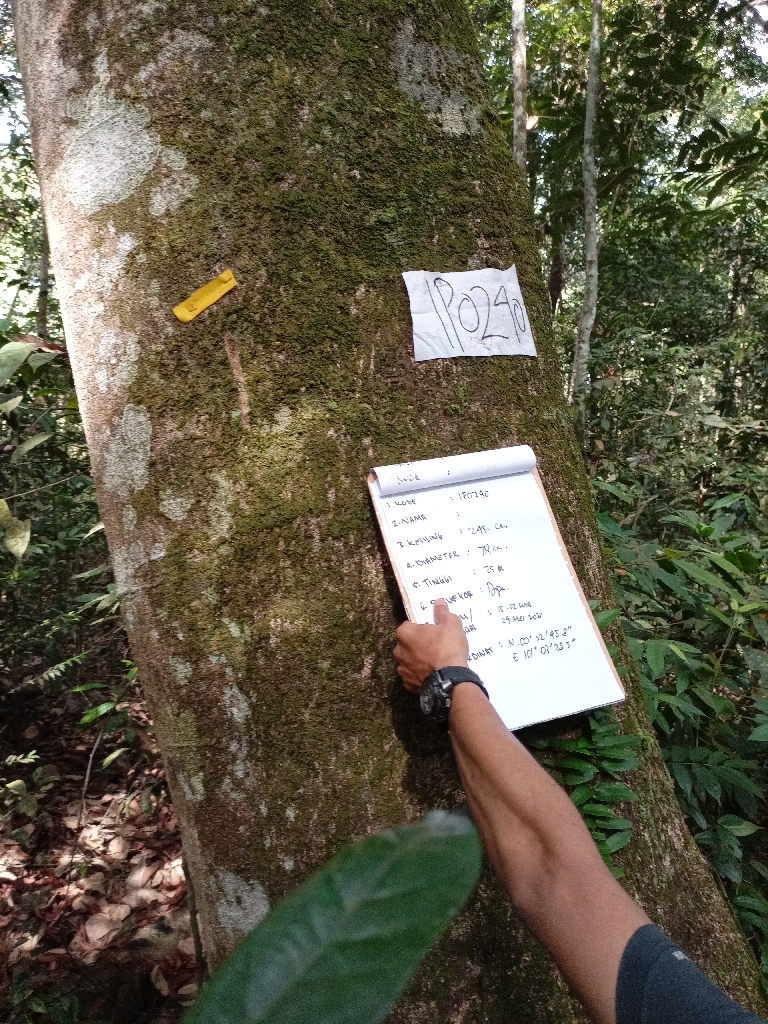 IPO240
KODE :
1. KODE : IPO240
2. NAMA :
3. KELILING : 245. cm
4. DIAMETER : 78 cm.
5. TINGGI : 25 m
6. SURVEYOR :
: 15.02 WIB
29 MEI
: N. 00° 32' 45.8"
E 101° 03' 28.5"